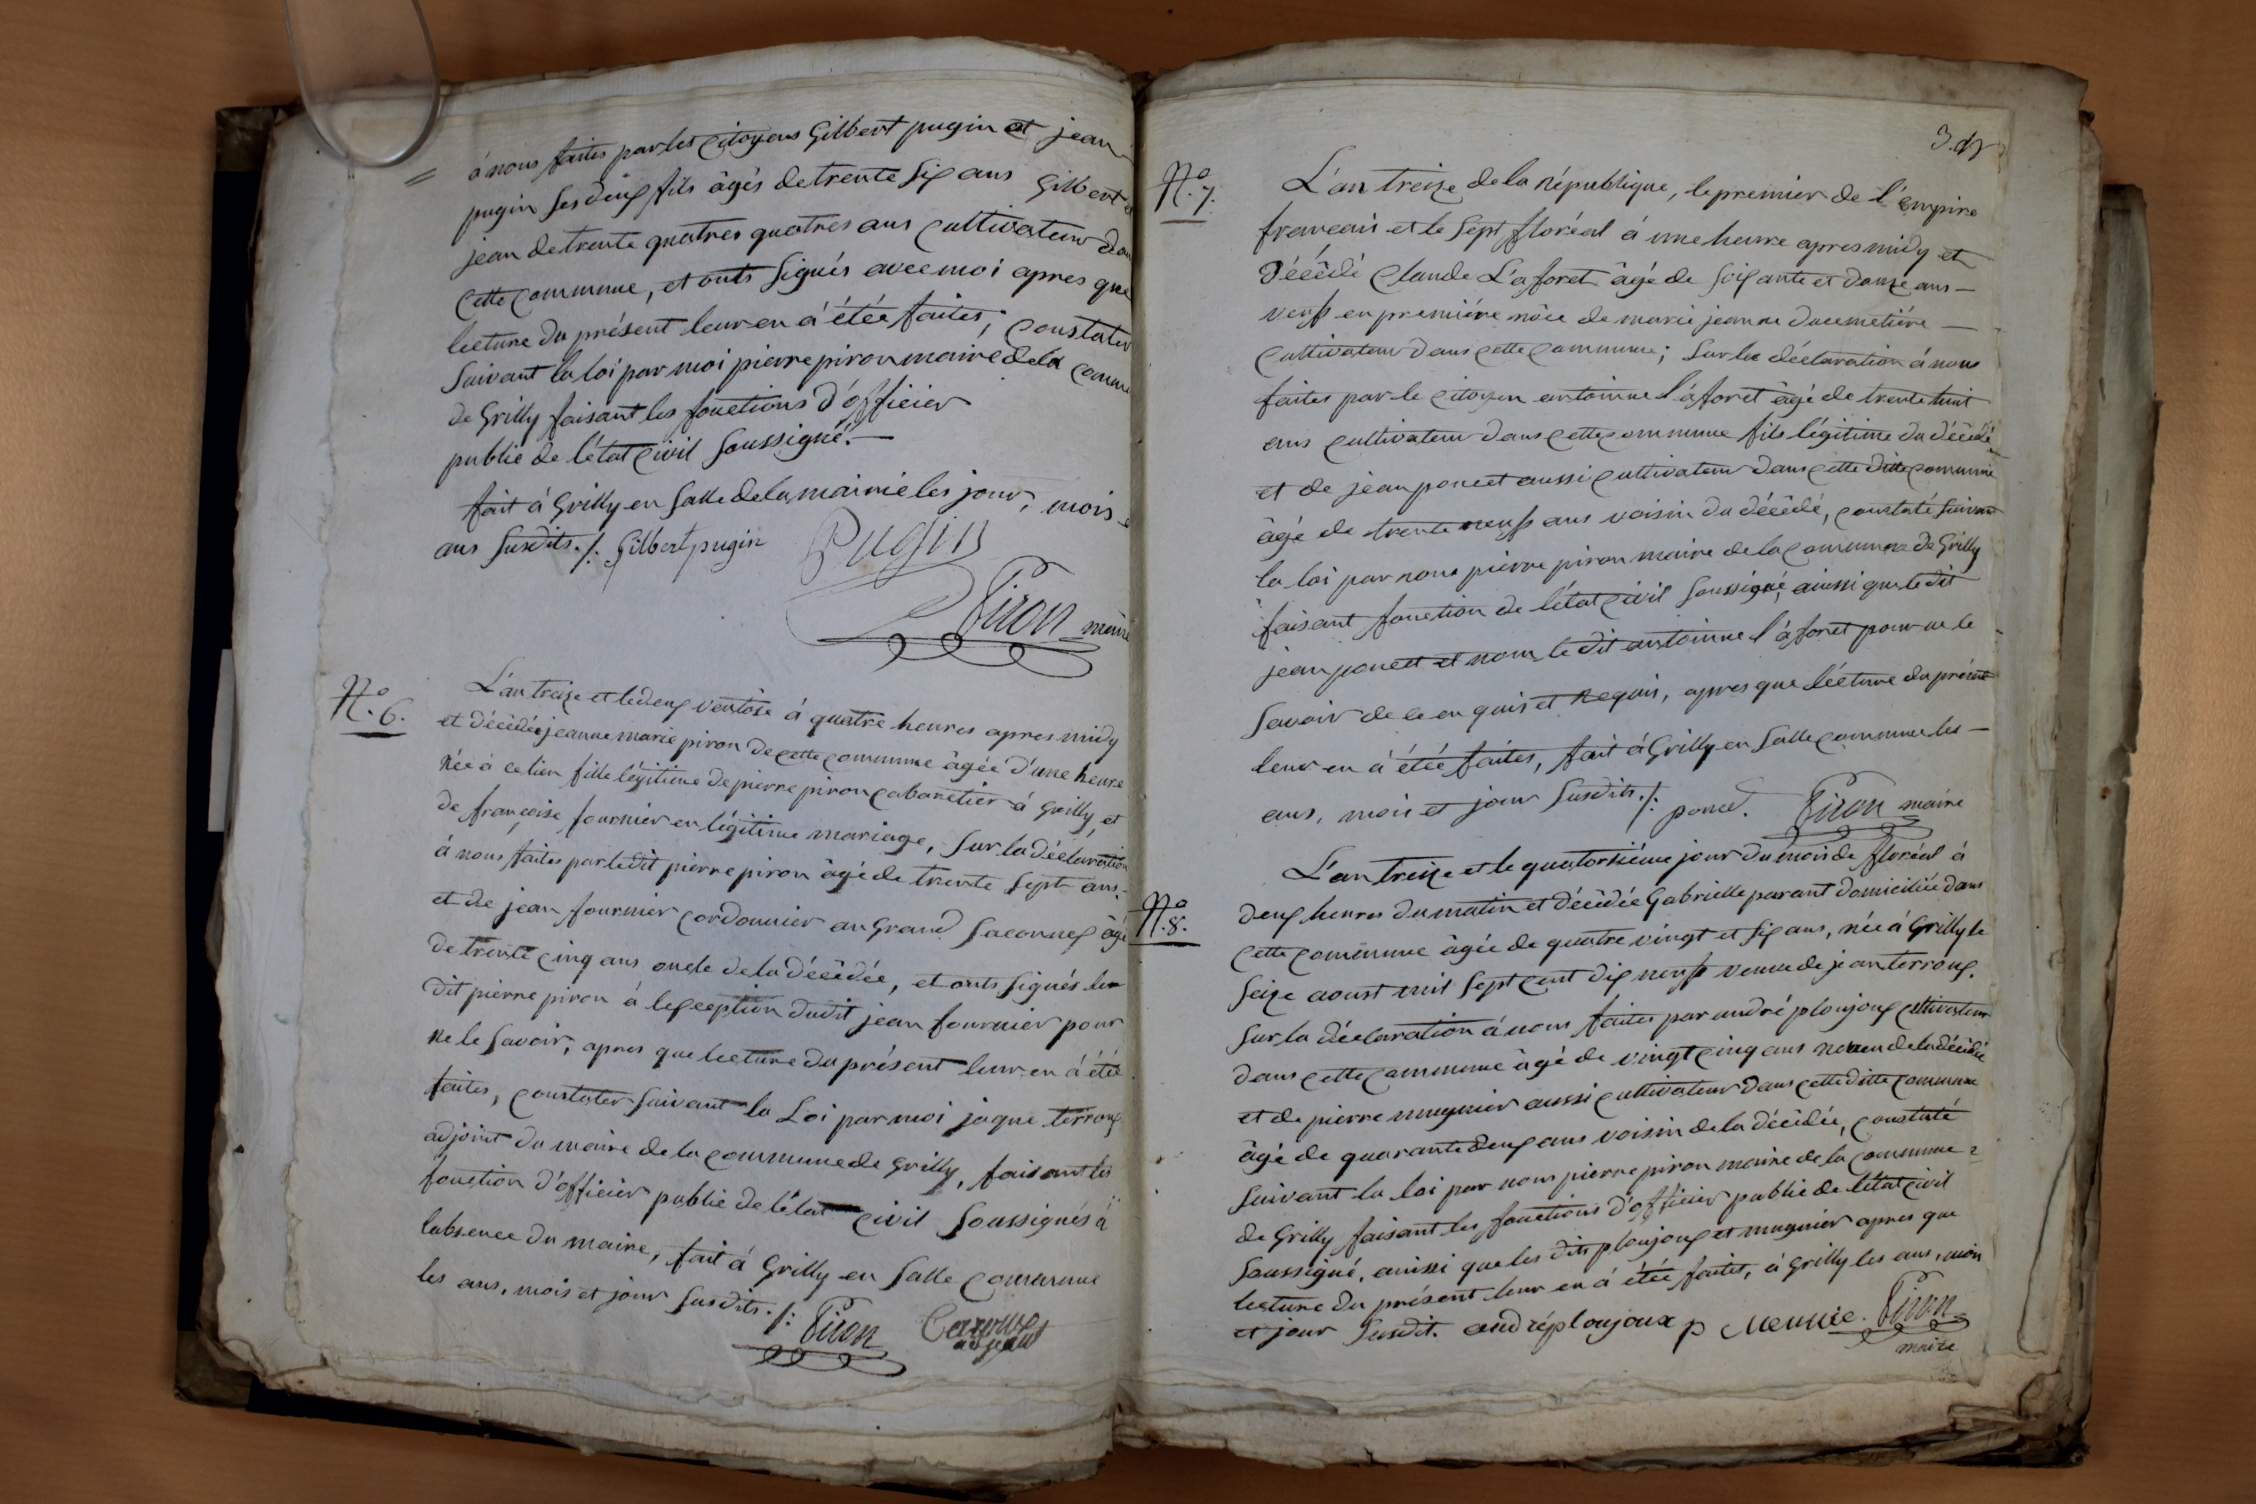 à nous faites par les citoyens Gilbert pugin et jean
pugin ses deux fils âgés de trente six ans Gilbert et
jean de trente quatres quatres ans cultivateur dans
cette commune, et onts signés avec moi apres que
lecture du présent leur en à étée faites, constater
suivant la loi par moi pierre piron maire de la comm
de Grilly faisant les fonctions d'officier
public de l'état civil soussigné.
fait à Grilly en salle de la mairie les jour, mois e
ans susdits ./. Gilbert pugin Pugin
Piron maire
N.o 6.
L'an treize et le deux ventose à quatre heures apres midy
et décédée jeanne marie piron de cette commune âgée d'une heure
née à ce lieu fille légitime de pierre piron cabaretier à Grilly, et
de françoise fournier en légitime mariage, sur la déclaration
à nous faites par le dit pierre piron âgé de trente sept ans
et de jean fournier cordonnier au Grand saconnex âgé
de trente cinq ans oncle de la décédée, et onts signés le
dit pierre piron à lexception dudit jean fournier pour
ne le savoir, apres que lecture du présent leur en à été
faites, constater suivant la Loi par moi jaque terroux
adjoint du maire de la commune de Grilly, faisant les
fonction d'officier public de l'état civil soussignés à
labsence du maire, fait à Grilly en salle commune
les ans, mois et jour susdits ./. Piron Terroux
adjoint
3.
N.o 7.
L'an treize de la république, le premier de l'empire
francais et le sept floréal à une heure apres midy et
décédé claude L'aforet âgé de soixante et douze ans
veuf en premiére nôce de marie jeanne ducemetiére
cultivateur dans cette commune; sur la déclaration à nous
faites par le citoyen antoinne l'aforet âgé de trente huit
ans cultivateur dans cette commune fils légitime du décédé
et de jean poncet aussi cultivateur dans cette ditte commune
âgé de trente neuf ans voisin du décédé, constaté suivant
la loi par nous pierre piron maire de la commune de Grilly
faisant fonction de l'état civil soussigné, ainssi que le dit
jean poncet et nom le dit antoinne l'aforet pour ne le
savoir de ce en quis et Requis, apres que lécture du présent
leur en à étée faites, fait à Grilly en salle commune les
ans, mois et jour susdits ./. poncet. Piron maire
N.o 8.
L'an treize et le quatorsiéme jour du mois de floréal à
deux heures du matin et décédée Gabrielle parant domiciliée dans
cette commune âgée de quatre vingt et six ans, née à Grilly le
seize aoust mil sept cent dix neuf veuve de jean terroux.
sur la déclaration à nous faites par andré ploujoux cultivateur
dans cette commune âgé de vingt cinq ans neveu de la décédée
et de pierre mugnier aussi cultivateur dans cette ditte commune
âgé de quarante deux ans voisin de la décédée, constaté
suivant la loi par nous pierre piron maire de la commune
de Grilly faisant les fonctions d'officier public de l'état civil
soussigné, ainssi que les dits ploujoux et mugnier apres que
lecture du présent leur en à étée faites, à Grilly les ans, mois
et jour susdit. andré ploujoux p meunie. Piron
maire